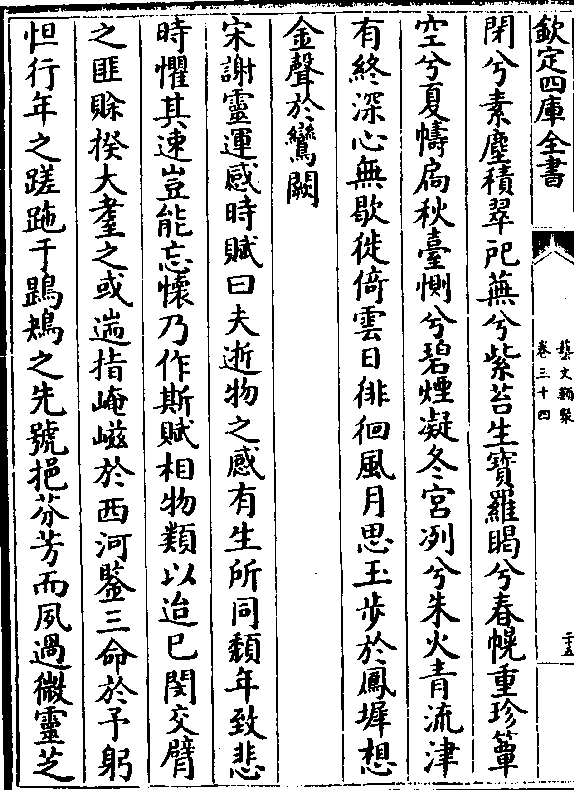 欽定四庫全書
藝文類聚
卷三十四
二十五
閉兮素塵積翠戺蕪兮紫苔生寶羅暍兮春幌重珍簟
空兮夏幬扃秋臺惻兮碧煙凝冬宮冽兮朱火青流津
有終深心無歇徙倚雲日徘徊風月思玉步於鳳墀想
金聲於鸞闕
宋謝靈運感時賦曰夫逝物之感有生所同頽年致悲
時懼其速豈能忘懷乃作斯賦相物類以迨已閔交臂
之匪賒揆大耋之或遄指崦嵫於西河鑒三命於予躬
怛行年之蹉跎于鵾鴂之先號挹芬芳而夙過微靈芝